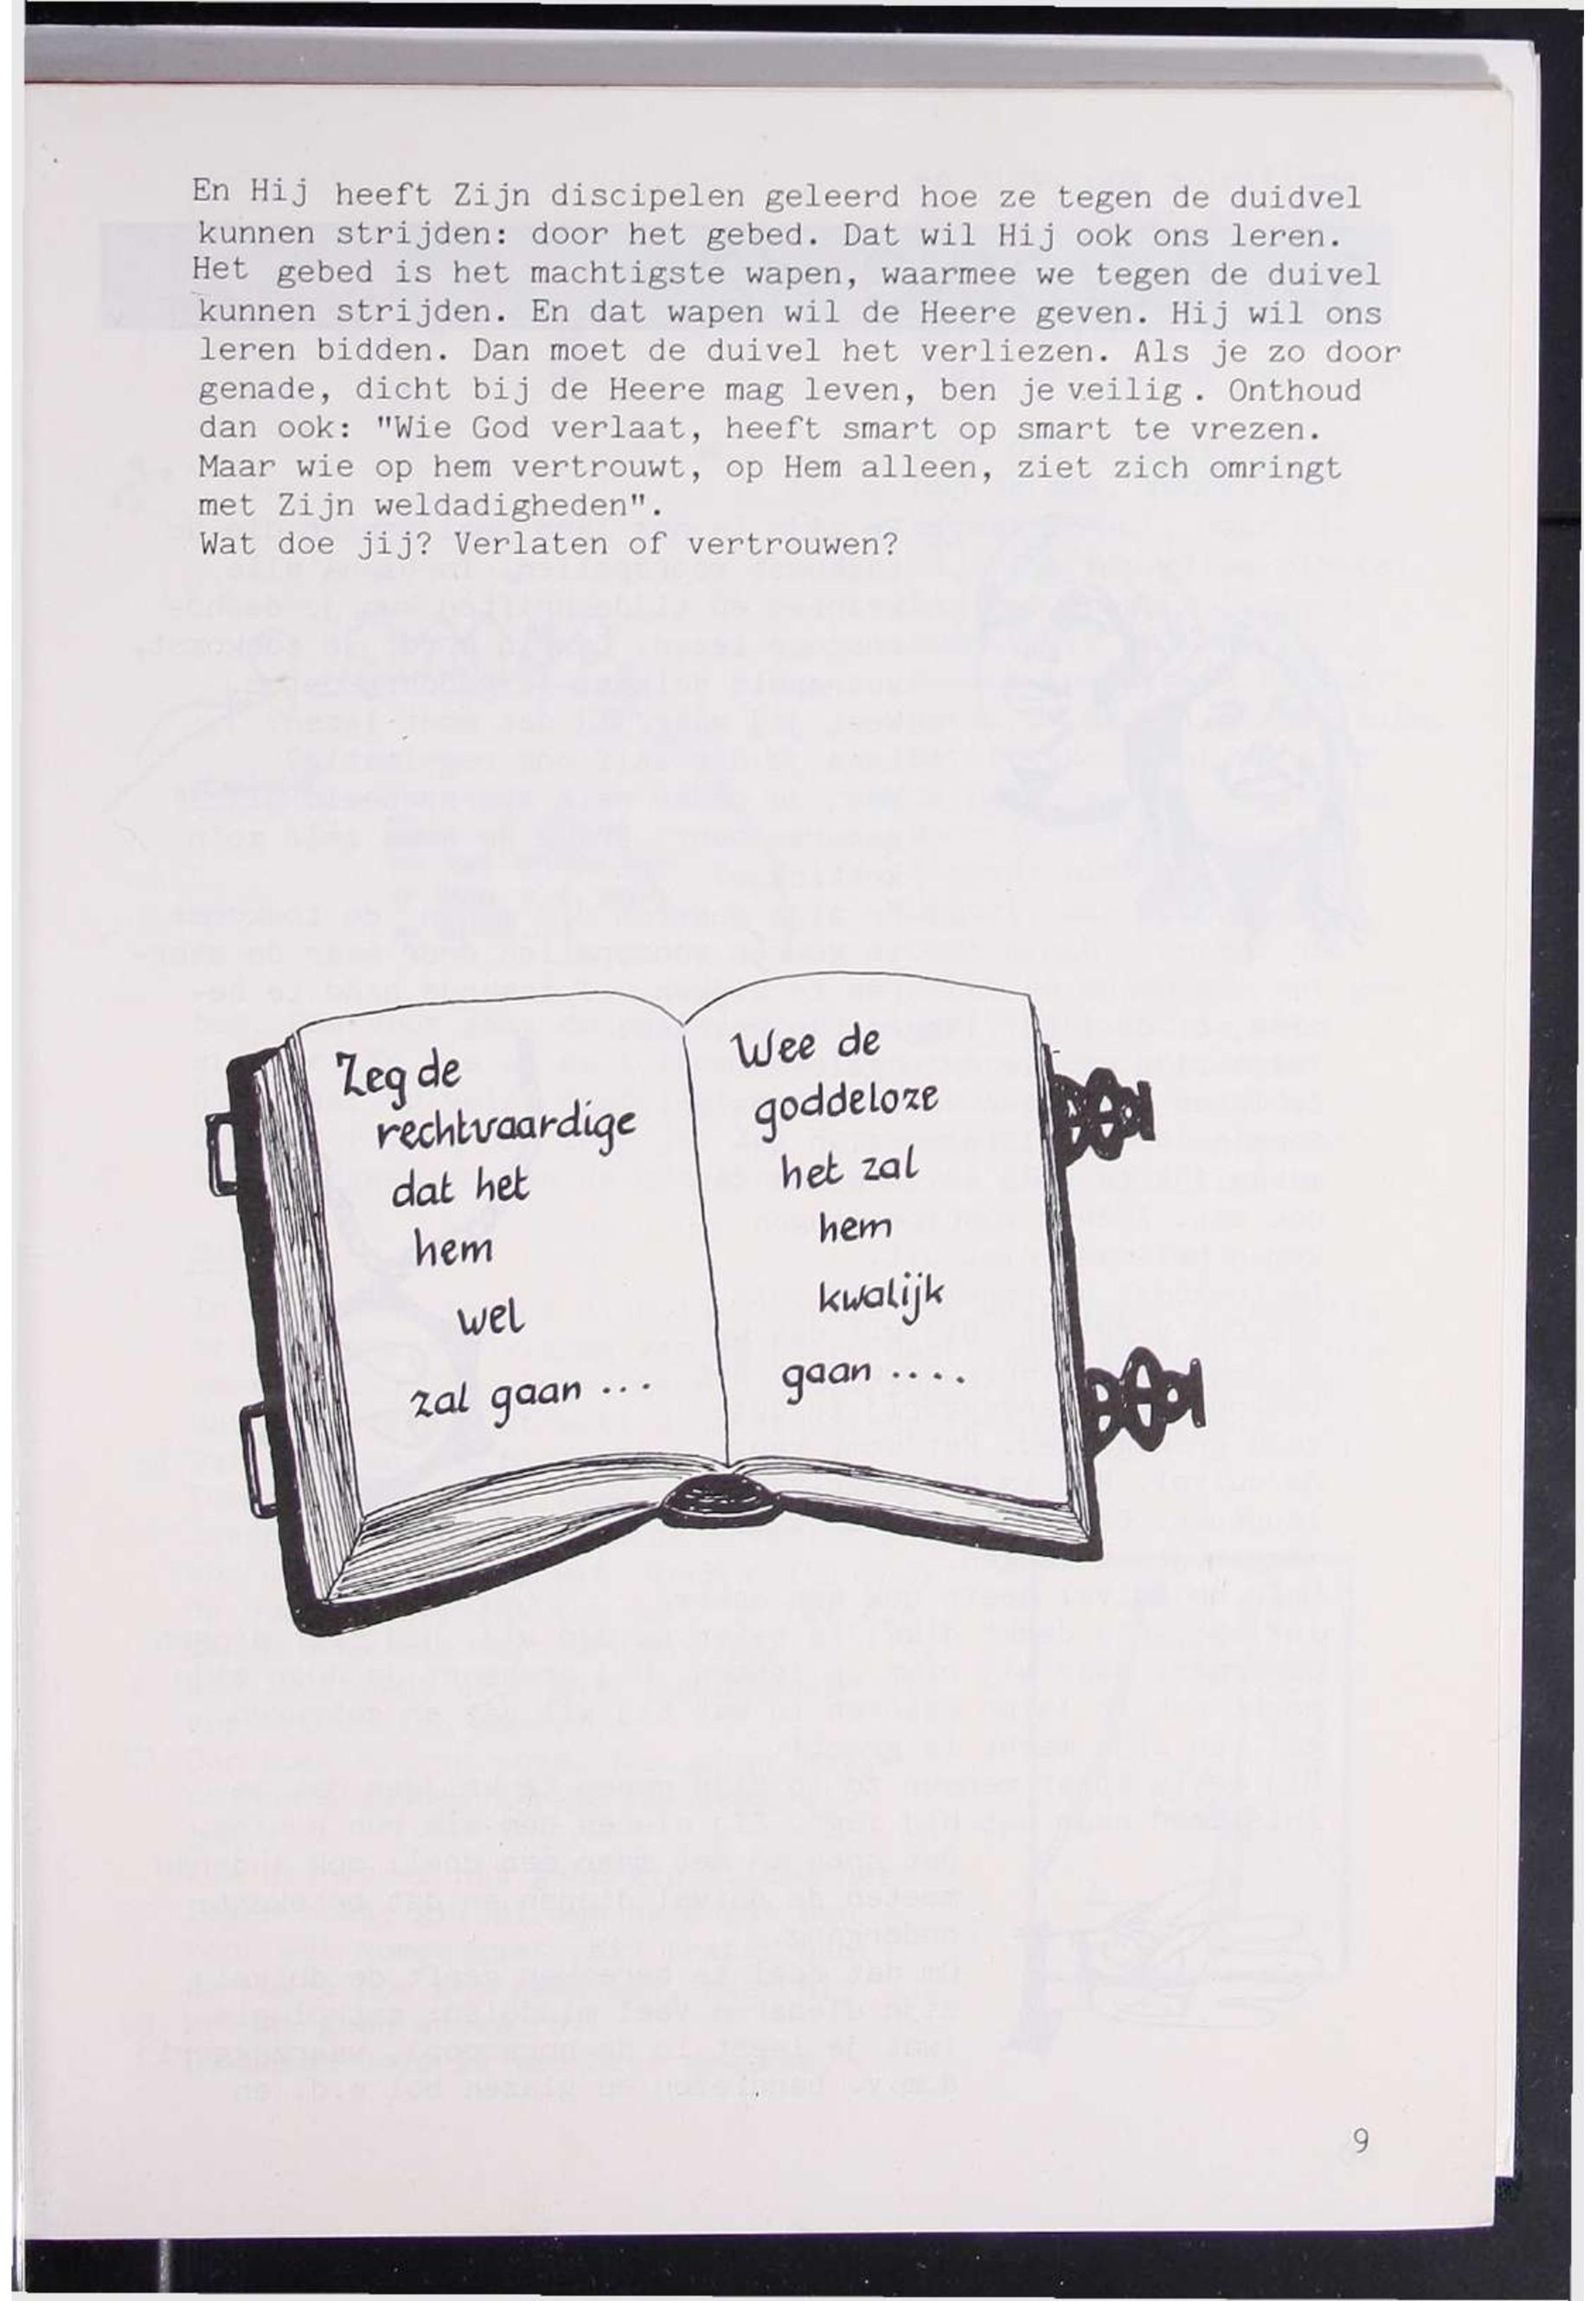 En Hij heeft Zijn discipelen geleerd hoe ze tegen de duidvel
kunnen strijden: door het gebed. Dat wil Hij ook ons leren.
Het gebed is het machtigste wapen, waarmee we tegen de duivel
kunnen strijden. En dat wapen wil de Heere geven. Hij wil ons
leren bidden. Dan moet de duivel het verliezen. Als je zo door
genade, dicht bij de Heere mag leven, ben je veilig. Onthoud
dan ook: "Wie God verlaat, heeft smart op smart te vrezen.
Maar wie op hem vertrouwt, op Hem alleen, ziet zich omringt
met Zijn weldadigheden".
Wat doe jij? Verlaten of vertrouwen?
Zeg de
rechtvaardige
dat het
hem
wel
zal gaan ...
Wee de
goddeloze
het zal
hem
kwalijk
gaan ....
9